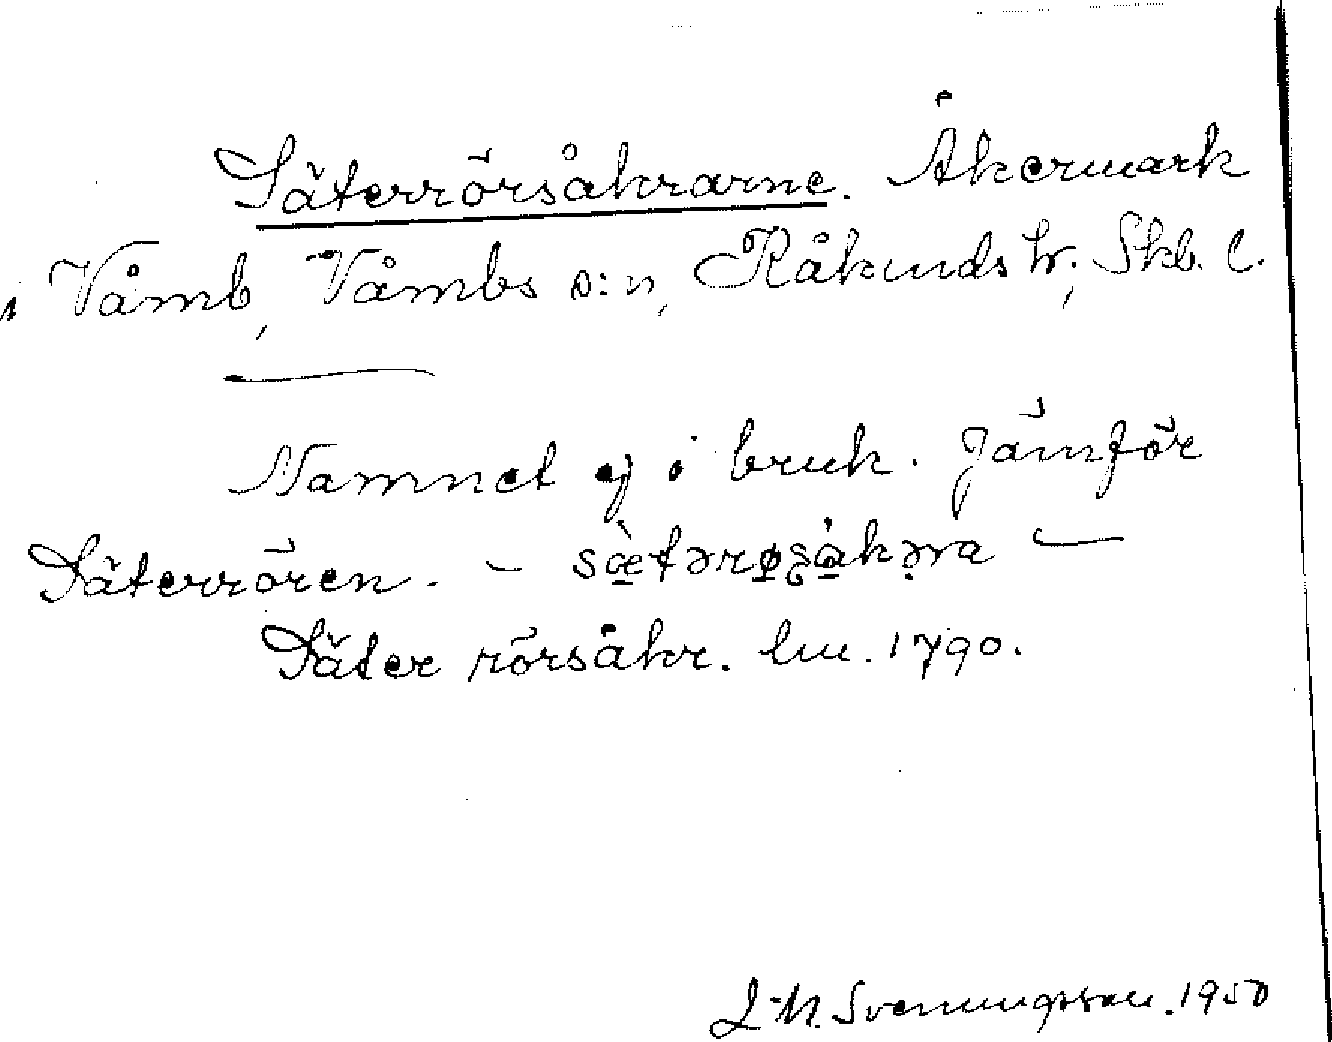 Säterrörsåkrarne. Åkermark
i Våmb, Våmbs s:n, Kåkinds hr., Skb. l.
Namnet ej i bruk. Jämför
Säterrören. – sæ̀tərøʂåkəra –
Säter rörsåkr. lm. 1790.
L-M. Svenungsson. 1950